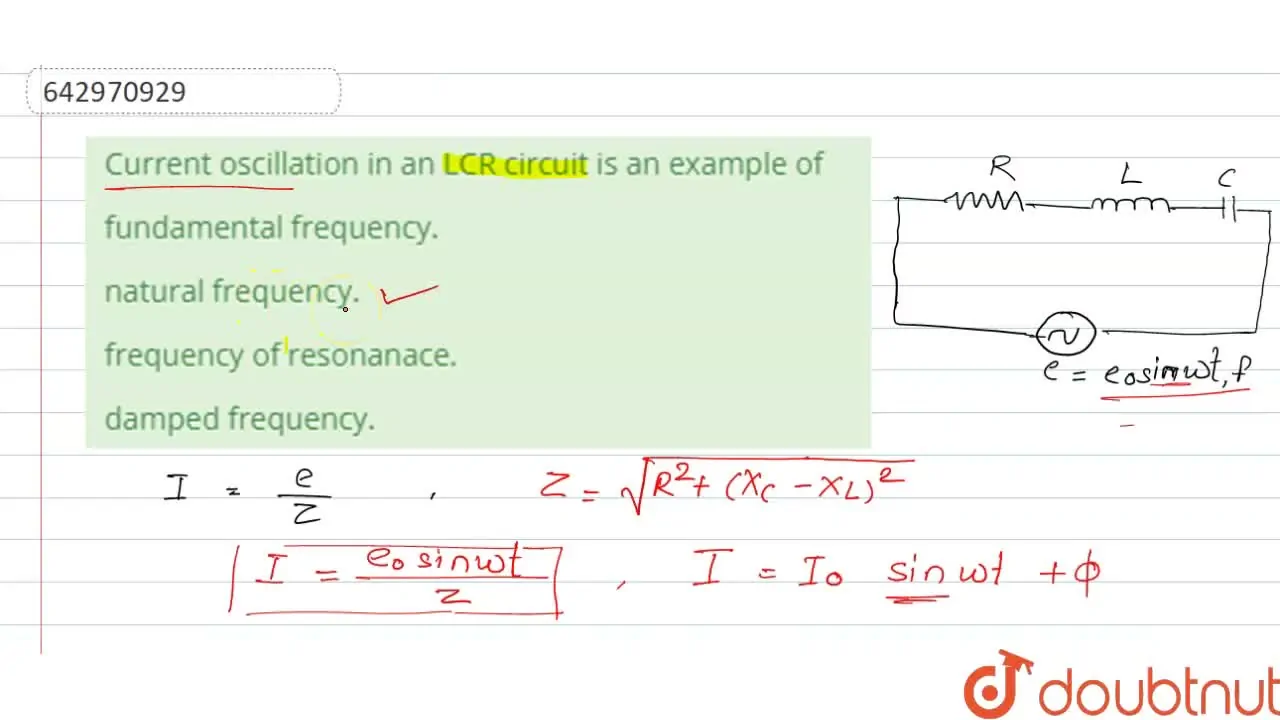 642970929
Current oscillation in an LCR circuit is an example of
fundamental frequency.
natural frequency.
frequency of resonanace.
damped frequency.
R L C
~
e = e₀ sinωt, f
I = e/Z , Z = √R² + (Xc - XL)²
I = e₀ sinωt / Z , I = I₀ sinωt + φ
doubtnut